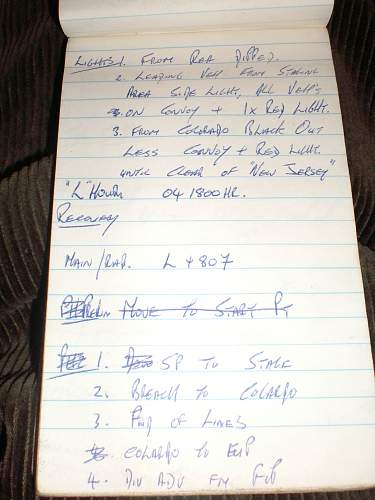 LIGHTS 1. FROM REA DIPPED.
2. LEADING VEH FROM STAGING
AREA SIDE LIGHT, ALL VEH'S
ON CONVOY + 1x RED LIGHT.
3. FROM COLORADO BLACK OUT
LESS CONVOY + RED LIGHT.
UNTIL CLEAR OF "NEW JERSEY"
"L" HOUR 04 1800 HR.
RECOVERY
MAIN/RAP. L + 807
MOVE TO START PT
1. SP TO STAGE
2. BREACH TO COLARDO
3. FWD OF LINES
COLARDO TO FUP
4. DIV ADV FM FUP